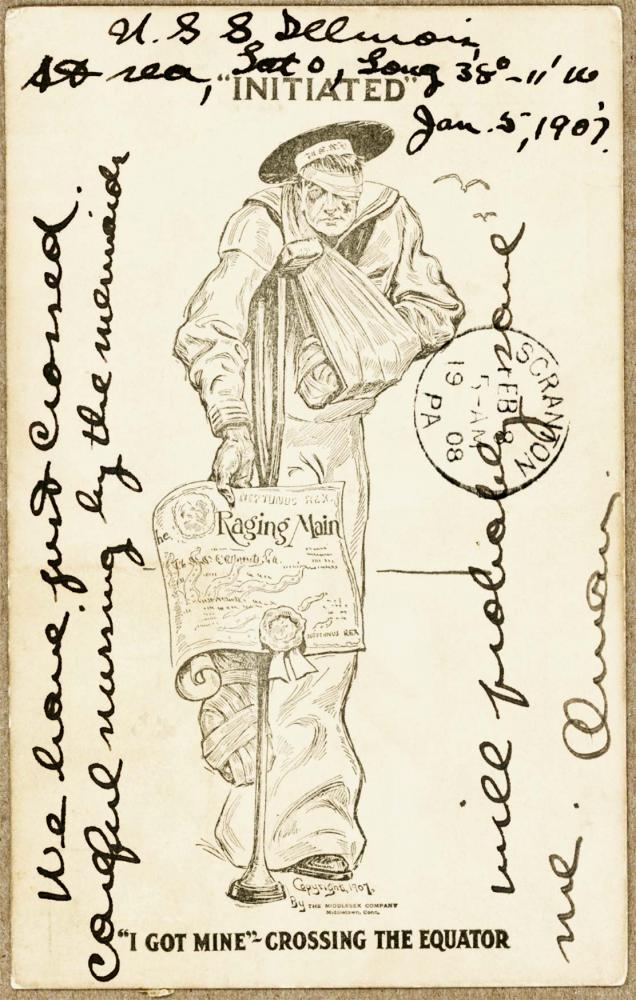 U. S. S. Illinois,
At sea, Lat 0, Long 38°-11' W
Jan. 5, 1907.
"INITIATED"
We have just crossed.
careful nursing by the mermaids
will probably save
me.
SCRANTON
FEB 8
5-AM
19 08
PA
NEPTUNUS REX
Raging Main
NEPTUNUS REX
Copyright, 1907,
By THE MIDDLESEX COMPANY
Middletown, Conn.
"I GOT MINE"-CROSSING THE EQUATOR